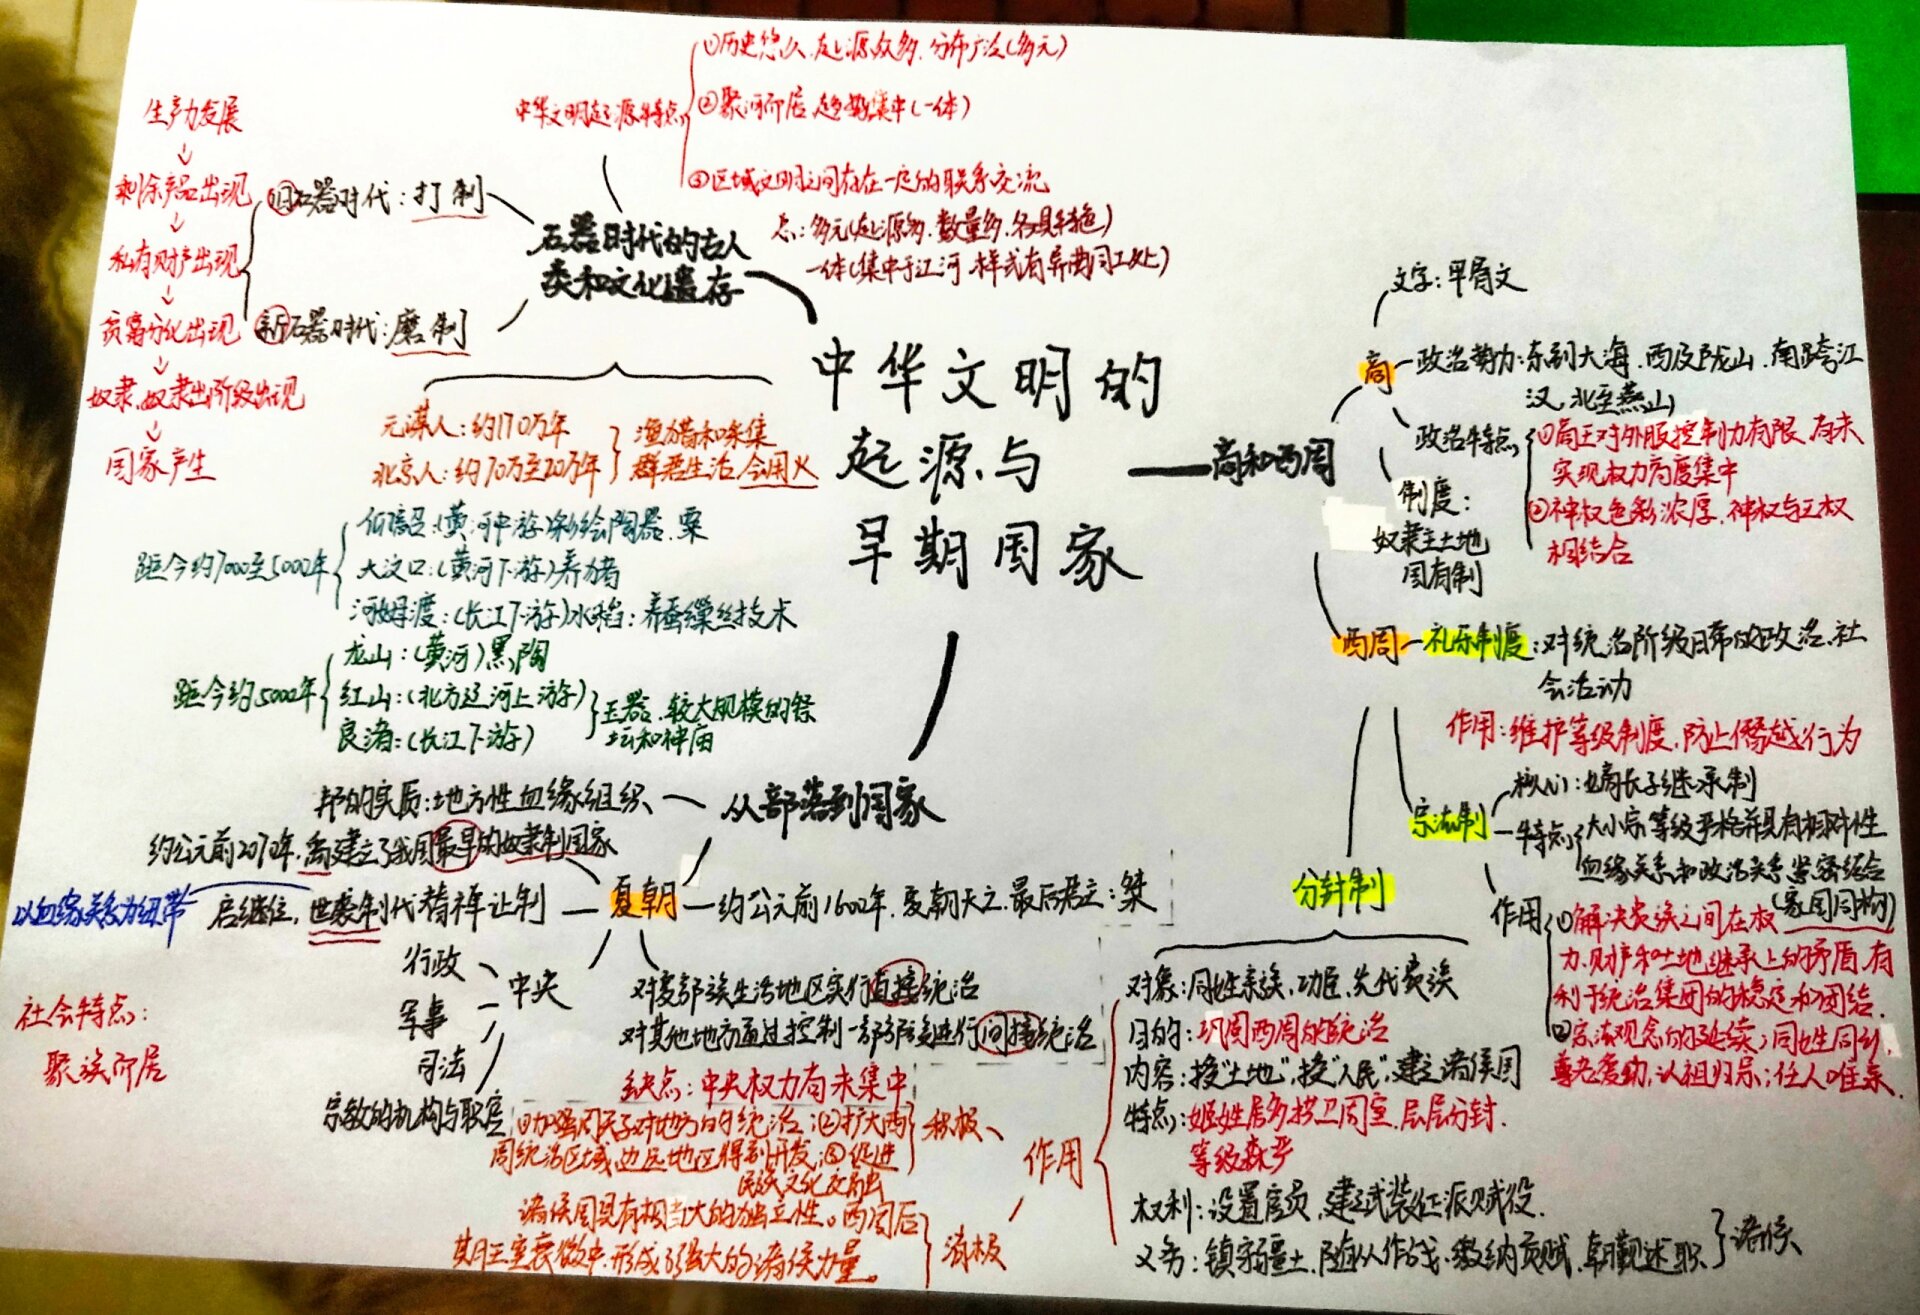 中华文明的
起源与
早期国家
石器时代的古人
类和文化遗存
中华文明起源特点
①历史悠久、起源众多、分布广泛(多元)
②聚河而居,趋势集中(一体)
③区域文明之间存在一定的联系交流
点:多元(起源多、数量多、各具特色)
一体(集中于江河、样式有异曲同工处)
旧石器时代:打制
新石器时代:磨制
生产力发展
剩余产品出现
私有财产出现
贫富分化出现
奴隶、奴隶主阶级出现
国家产生
元谋人:约170万年
北京人:约70万至20万年
渔猎和采集
群居生活 会用火
距今约7000至5000年
仰韶:(黄河中游)彩绘陶器、粟
大汶口:(黄河下游)养猪
河姆渡:(长江下游)水稻;养蚕缫丝技术
距今约5000年
龙山:(黄河)黑陶
红山:(北方辽河上游)
良渚:(长江下游)
玉器、较大规模的祭
坛和神庙
从部落到国家
邦的实质:地方性血缘组织
夏朝
约公元前2070年,禹建立了我国最早的奴隶制国家
启继位,世袭制代替禅让制
以血缘关系为纽带
约公元前1600年,夏朝灭亡,最后君主:桀
中央
行政
军事
司法
宗教的机构与职官
对夏部族生活地区实行直接统治
对其他地方通过控制一部部族进行间接统治
缺点:中央权力尚未集中
社会特点:
聚族而居
商和西周
商
文字:甲骨文
政治势力:东到大海、西及陇山、南跨江
汉、北至燕山
政治特点
①商王对外服控制力有限,尚未
实现权力高度集中
②神权色彩浓厚,神权与王权
相结合
制度:
奴隶主土地
国有制
西周
礼乐制度:对统治阶级日常的政治、社
会活动
作用:维护等级制度,防止僭越行为
宗法制
核心:嫡长子继承制
特点
大小宗等级严格并具有相对性
血缘关系和政治关系紧密结合
(家国同构)
作用
①解决贵族之间在权
力、财产和土地继承上的矛盾,有
利于统治集团的稳定和团结.
②宗法观念的延续;同姓同乡、
尊老爱幼,认祖归宗;任人唯亲.
分封制
对象:同姓亲族、功臣、先代贵族
目的:巩固西周的统治
内容:授“土地”,授“人民”,建立诸侯国
特点:姬姓居多拱卫周室、层层分封、
等级森严
权利:设置官员,建立武装,征派赋役.
义务:镇守疆土、随从作战、缴纳贡赋、朝觐述职
诸侯
作用
积极
①加强周天子对地方的统治;②扩大西
周统治区域、边远地区得到开发;③促进
民族文化交融
消极
诸侯国具有相当大的独立性。西周后
期王室衰微中,形成了强大的诸侯力量。